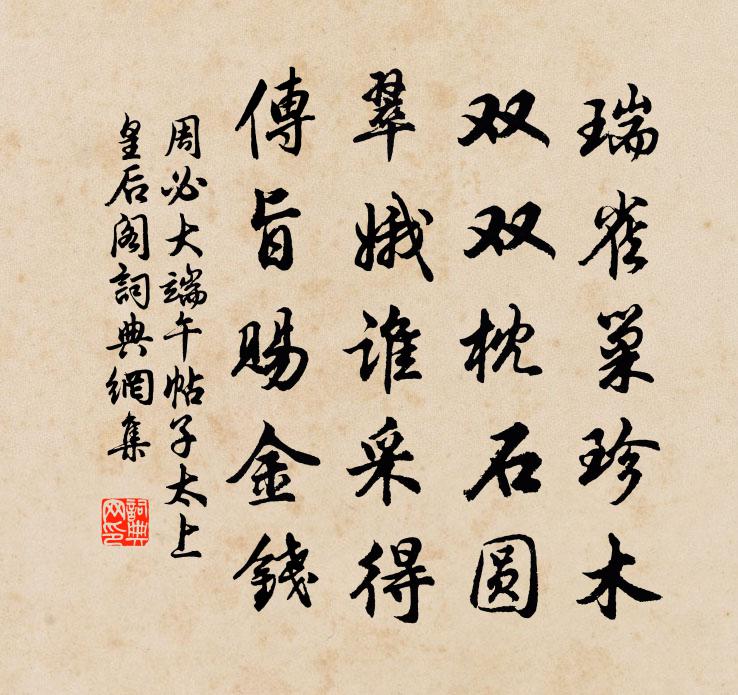 瑞雀巢珍木
双双枕石圆
翠娥谁采得
傳旨賜金錢
周必大端午帖子太上
皇后阁詞典網集
詞典
网印